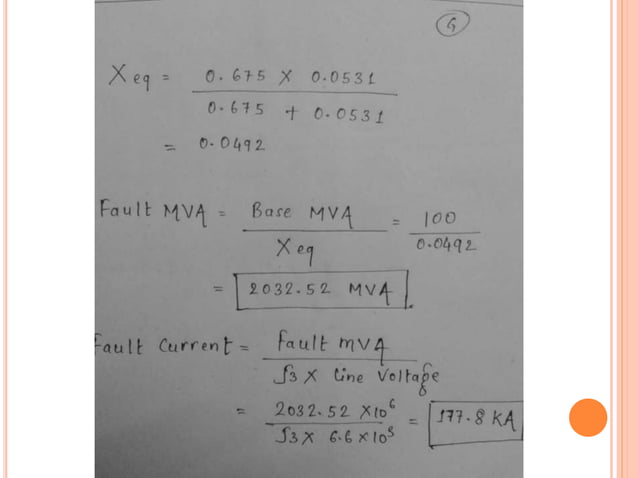 5
X eq = 0.675 X 0.0531
0.675 + 0.0531
= 0.0492
Fault MVA = Base MVA = 100
X eq 0.0492
= 2032.52 MVA.
Fault Current = Fault mVA
√3 X Line Voltage
= 2032.52 X10⁶ = 177.8 KA
√3 X 6.6 X10³